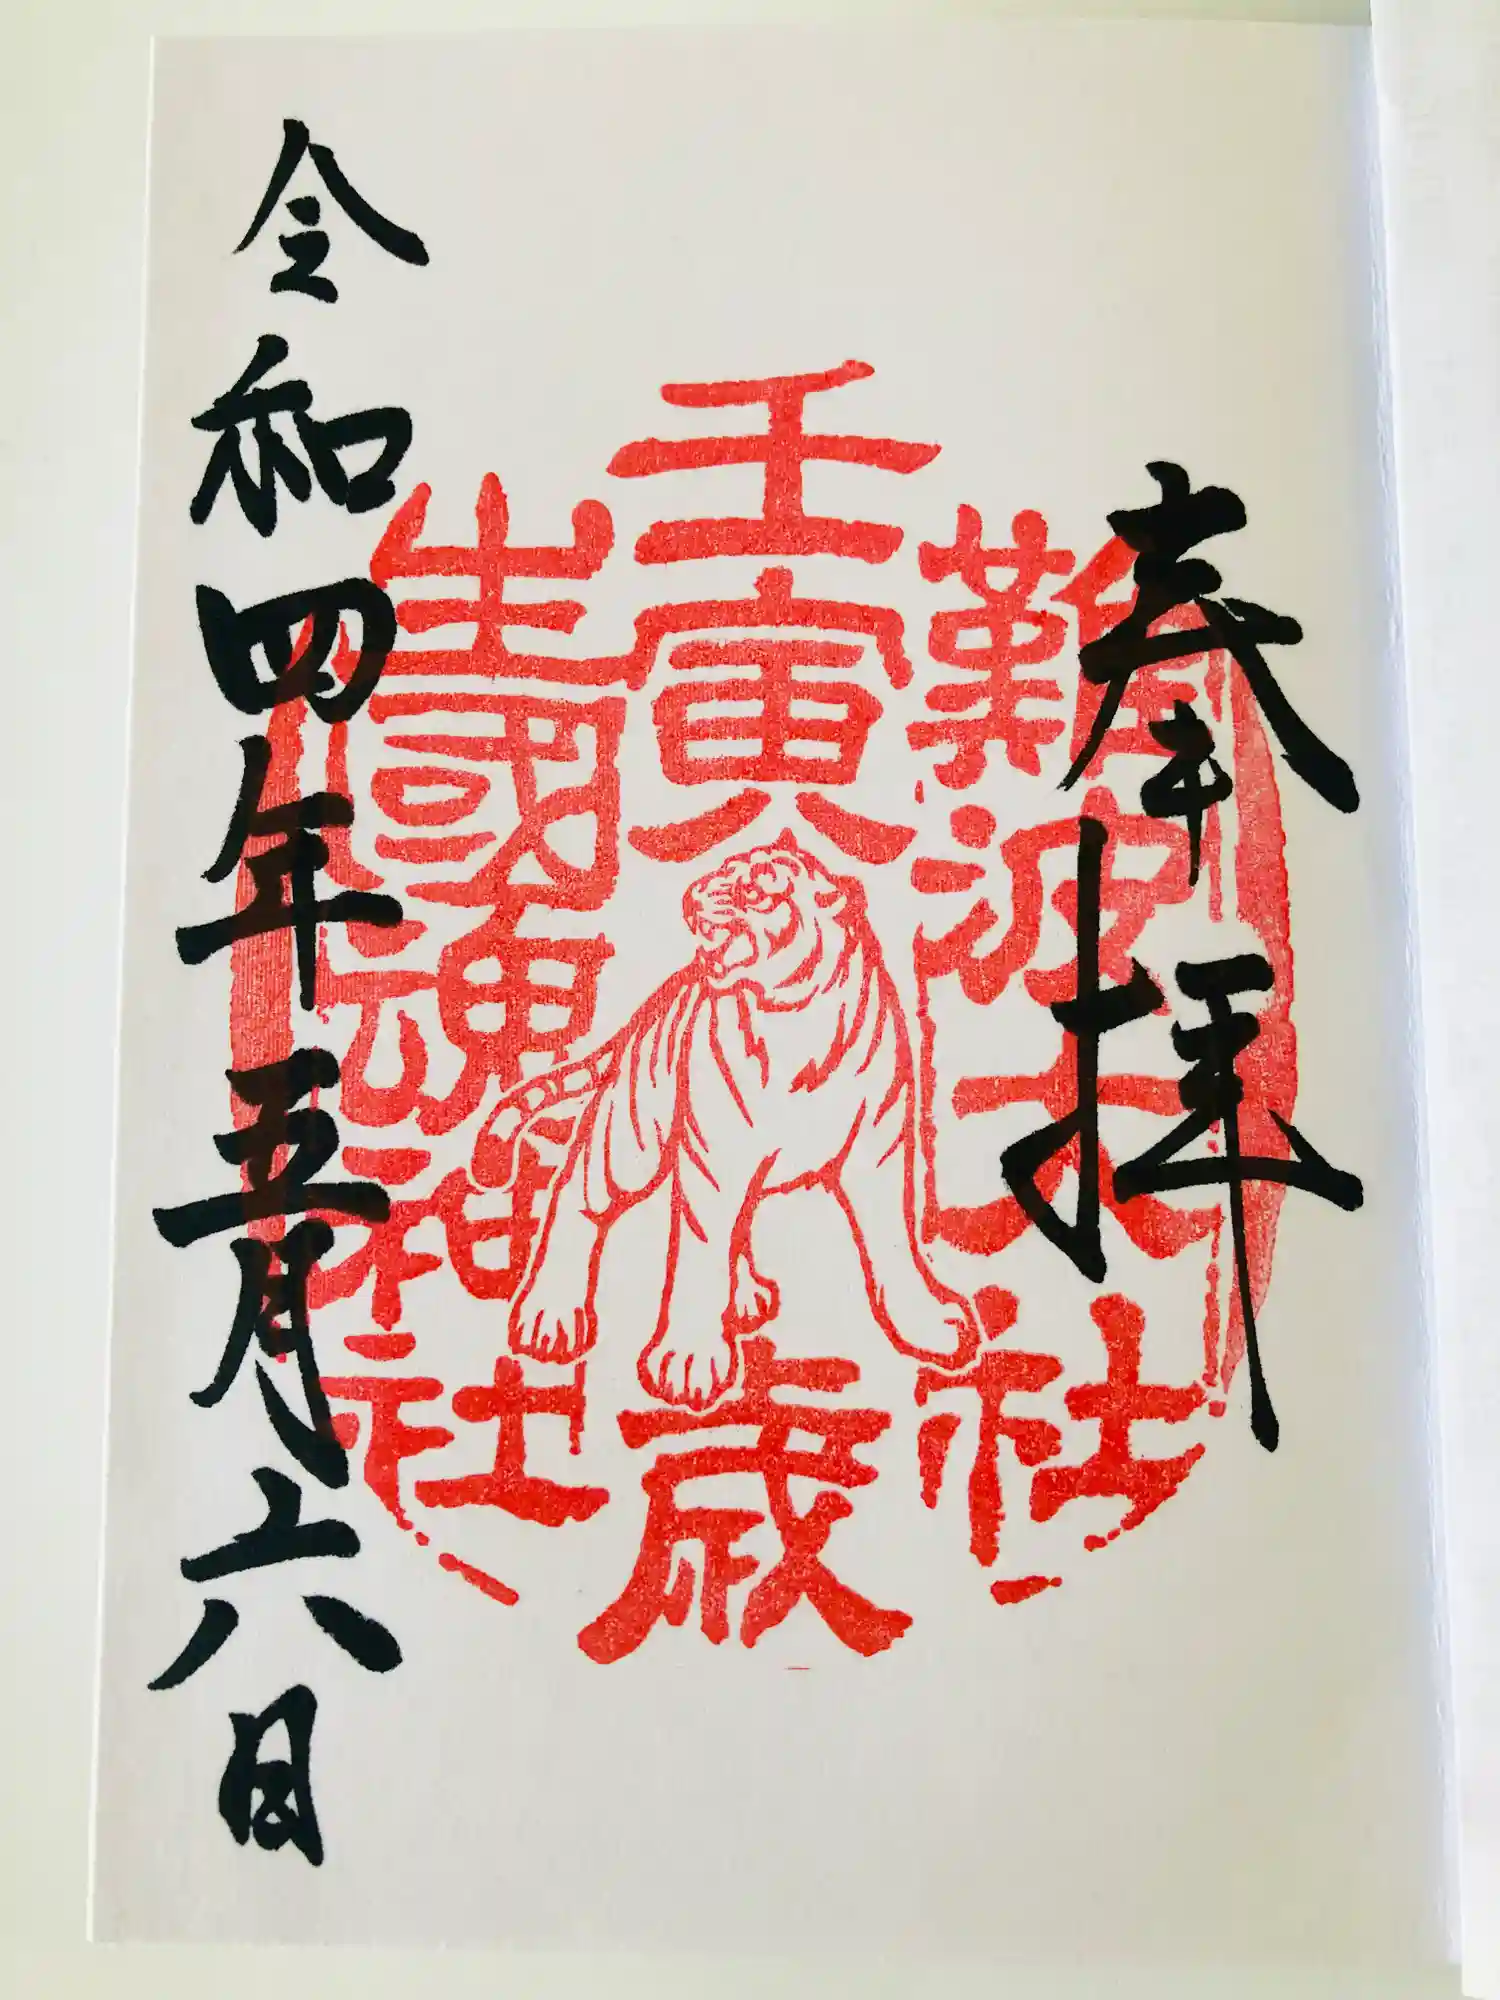 奉拝
難波大社
壬寅
歳
生國魂神社
令和四年五月六日